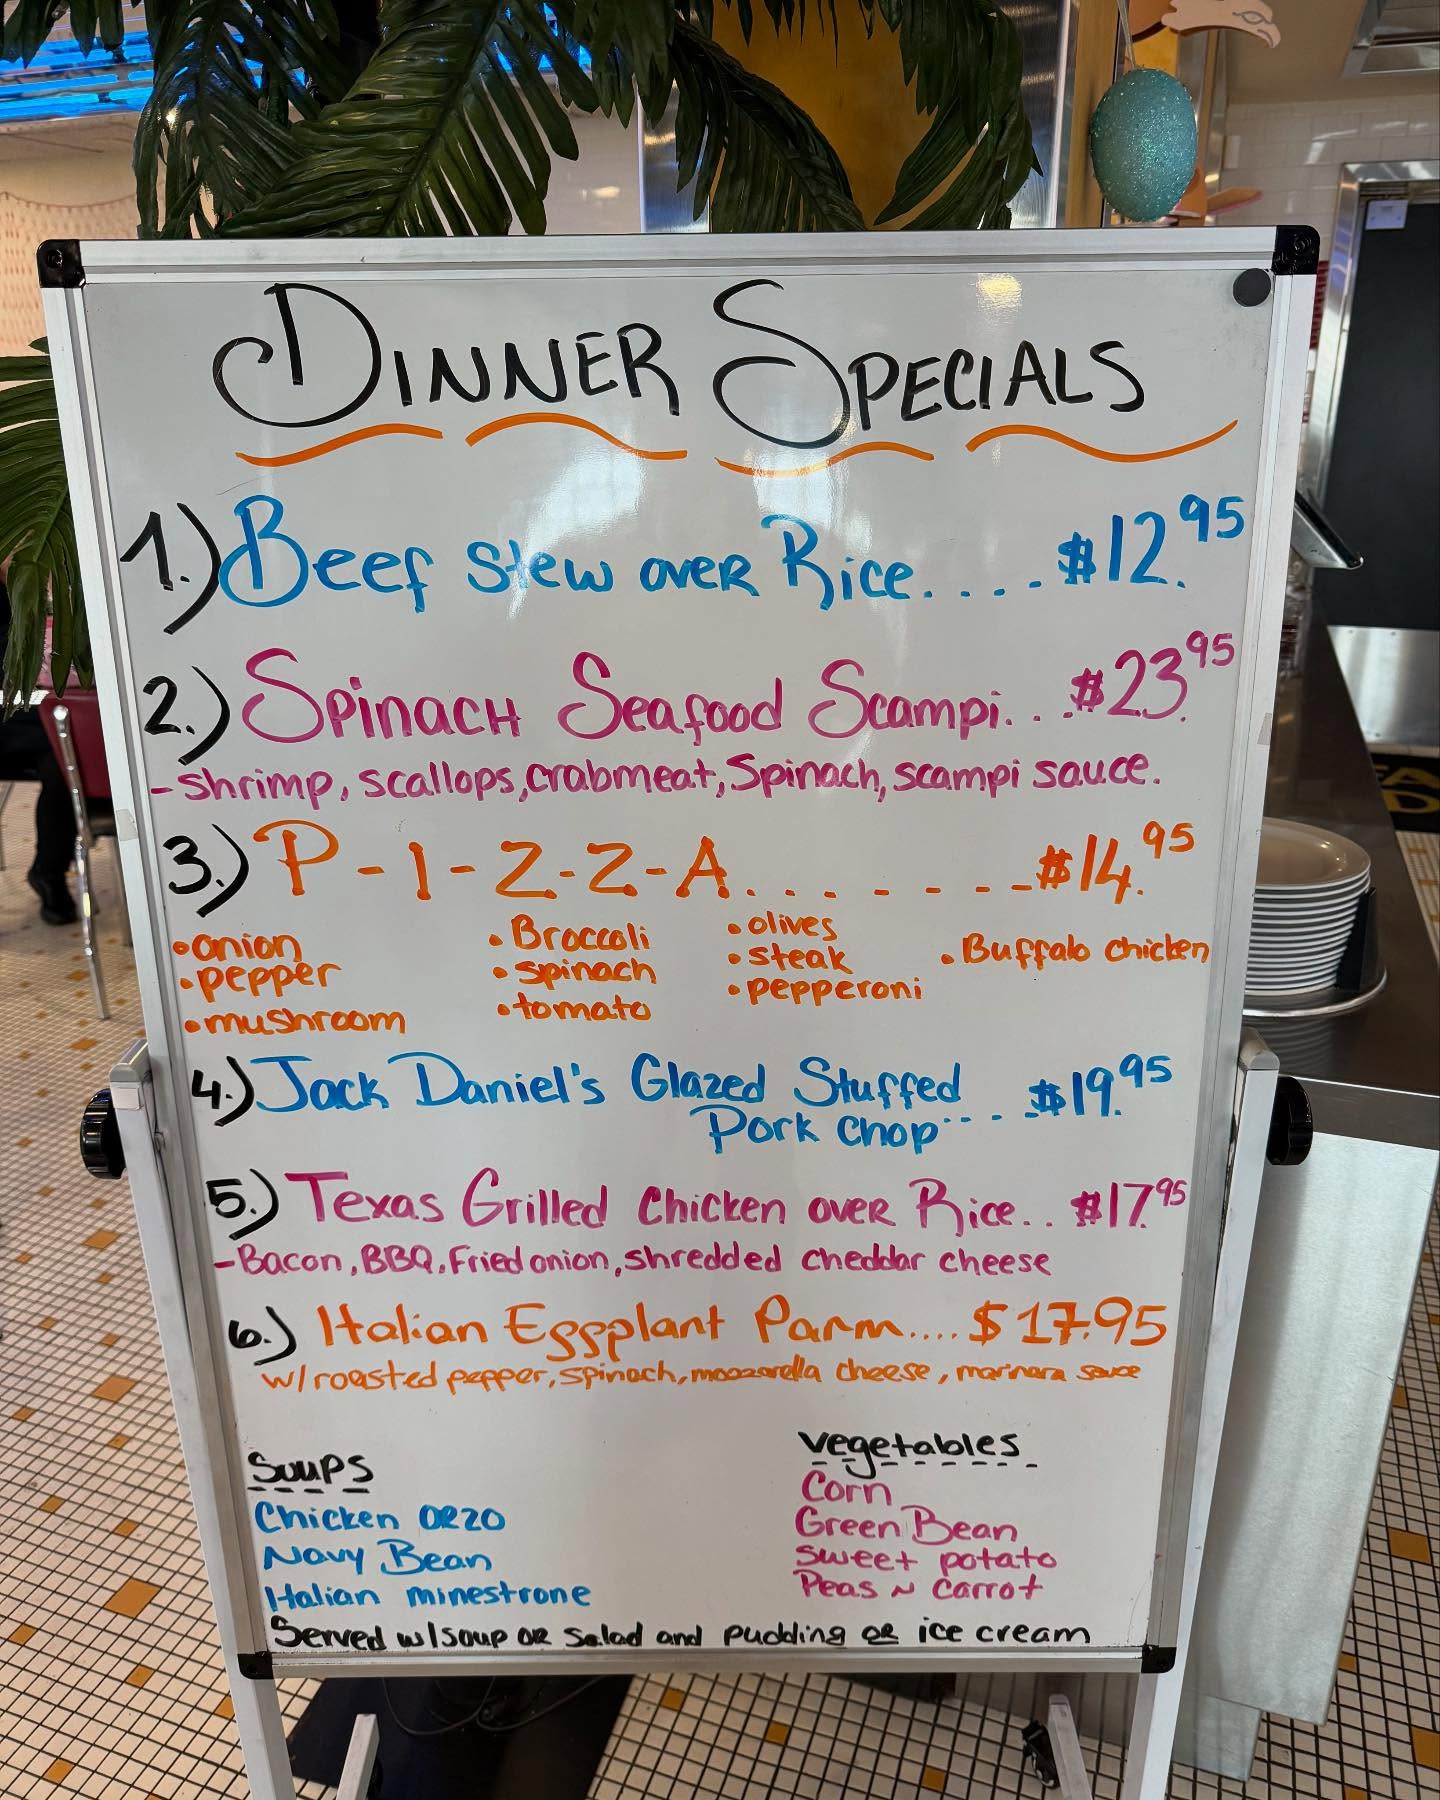 Dinner Specials
1.) Beef Stew over Rice.... $12.95
2.) Spinach Seafood Scampi... $23.95
- shrimp, scallops, crabmeat, Spinach, scampi sauce.
3.) P-I-Z-Z-A........ $14.95
• onion • Broccoli • olives • Buffalo chicken
• pepper • spinach • steak
• mushroom • tomato • pepperoni
4.) Jack Daniel's Glazed Stuffed
Pork Chop.... $19.95
5.) Texas Grilled Chicken over Rice.. $17.95
- Bacon, BBQ, Fried onion, shredded cheddar cheese
6.) Italian Eggplant Parm.... $17.95
w/ roasted pepper, spinach, mozzarella cheese, marinara sauce
Soups
Chicken Orzo
Navy Bean
Italian minestrone
Vegetables
Corn
Green Bean
Sweet potato
Peas n Carrot
Served w/ soup or Salad and pudding or ice cream